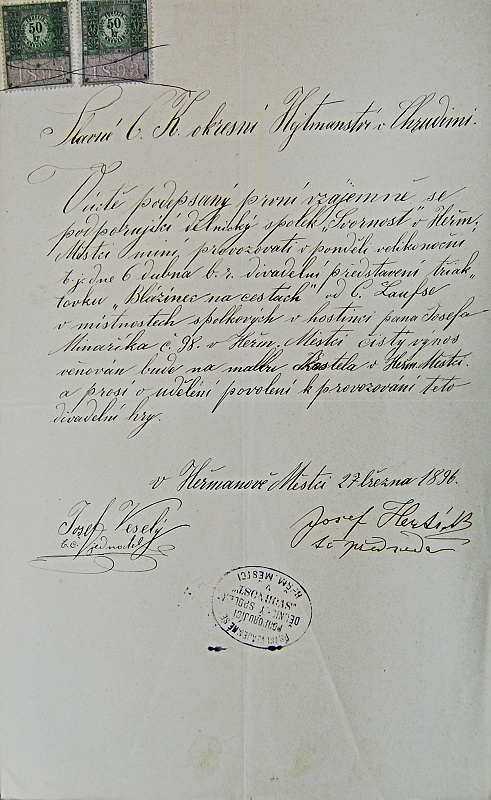 50 50
1893 1893
Slavné C. K. okresní Hejtmanství v Chrudimi.
Úctě podepsaný první vzájemně se
podporující dělnický spolek „Svornost" v Heřm.
Městci míní provozovati v pondělí velikonoční
t. j. dne 6 dubna b. r. divadelní představení triak„
tovku „Blázinec na cestách" od C. Laufse
v místnostech spolkových v hostinci pana Josefa
Minaříka č. 98. v Heřm. Městci čistý výnos
věnován bude na malbu Kostela v Heřm. Městci.
a prosí o udělení povolení k provozování této
divadelní hry.
v Heřmanově Městci 27 března 1896.
Josef Veselý
t. č. jednatel
Josef
t č předseda
PRVNÍ VZÁJEMNĚ SE
PODPORUJÍCÍ
DĚLNICKÝ SPOLEK
„SVORNOST"
V
HEŘM. MĚSTCI